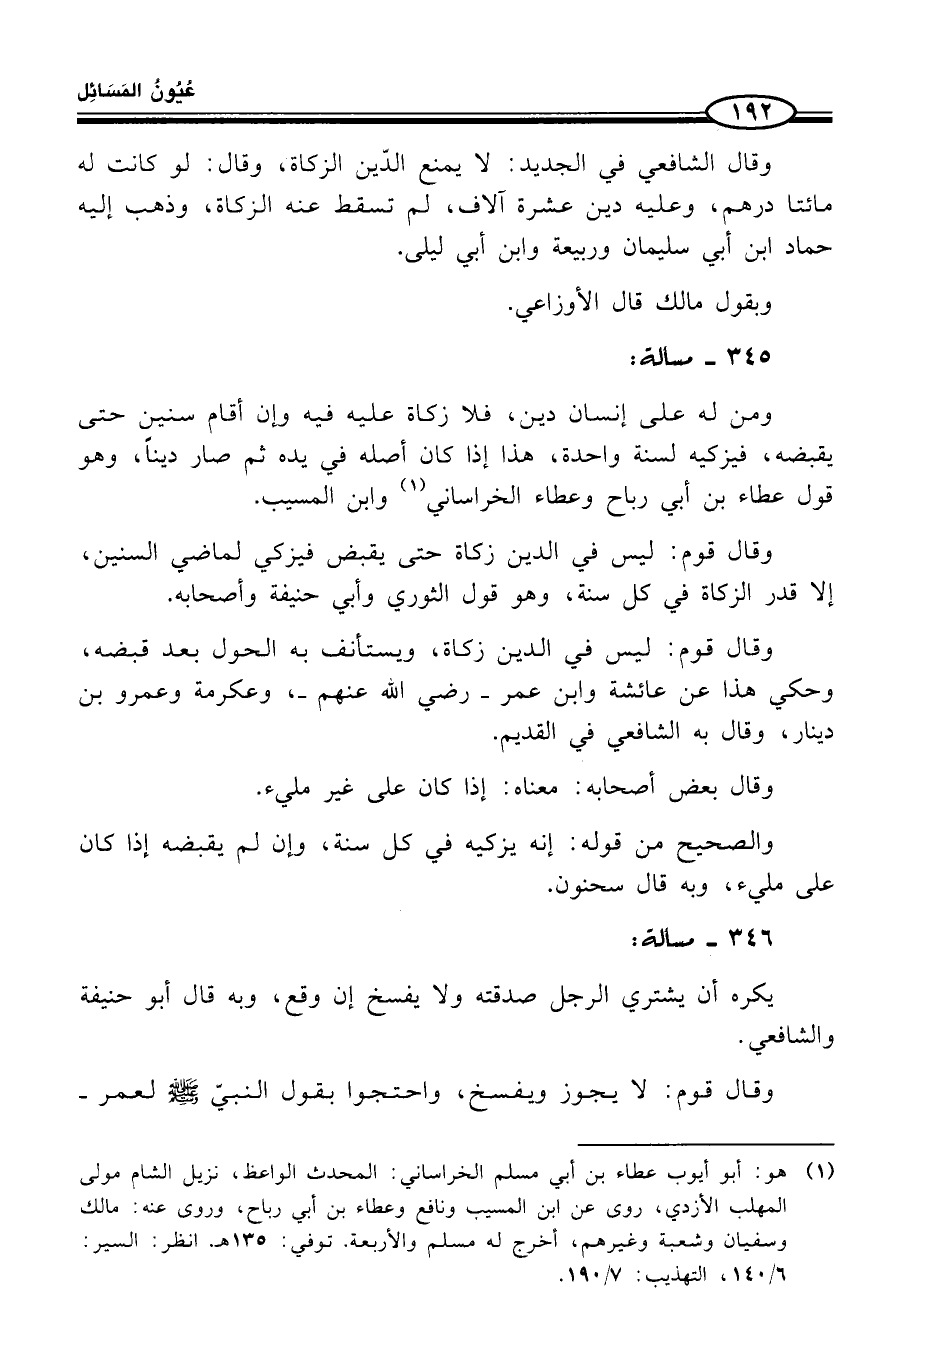 عُيُونُ المَسَائِل
١٩٢
وقال الشافعي في الجديد: لا يمنع الدّين الزكاة، وقال: لو كانت له
مائتا درهم، وعليه دين عشرة آلاف، لم تسقط عنه الزكاة، وذهب إليه
حماد ابن أبي سليمان وربيعة وابن أبي ليلى.
وبقول مالك قال الأوزاعي.
٣٤٥ ـ مسالة:
ومن له على إنسان دين، فلا زكاة عليه فيه وإن أقام سنين حتى
يقبضه، فيزكيه لسنة واحدة، هذا إذا كان أصله في يده ثم صار ديناً، وهو
قول عطاء بن أبي رباح وعطاء الخراساني(١) وابن المسيب.
وقال قوم: ليس في الدين زكاة حتى يقبض فيزكي لماضي السنين،
إلا قدر الزكاة في كل سنة، وهو قول الثوري وأبي حنيفة وأصحابه.
وقال قوم: ليس في الدين زكاة، ويستأنف به الحول بعد قبضه،
وحكي هذا عن عائشة وابن عمر ـ رضي الله عنهم ـ، وعكرمة وعمرو بن
دينار، وقال به الشافعي في القديم.
وقال بعض أصحابه: معناه: إذا كان على غير مليء.
والصحيح من قوله: إنه يزكيه في كل سنة، وإن لم يقبضه إذا كان
على مليء، وبه قال سحنون.
٣٤٦ ـ مسالة:
يكره أن يشتري الرجل صدقته ولا يفسخ إن وقع، وبه قال أبو حنيفة
والشافعي.
وقال قوم: لا يجوز ويفسخ، واحتجوا بقول النبيّ ﷺ لعمر ـ
(١) هو: أبو أيوب عطاء بن أبي مسلم الخراساني: المحدث الواعظ، نزيل الشام مولى
المهلب الأزدي، روى عن ابن المسيب ونافع وعطاء بن أبي رباح، وروى عنه: مالك
وسفيان وشعبة وغيرهم، أخرج له مسلم والأربعة. توفي: ١٣٥هـ. انظر: السير:
١٤٠/٦، التهذيب: ١٩٠/٧.